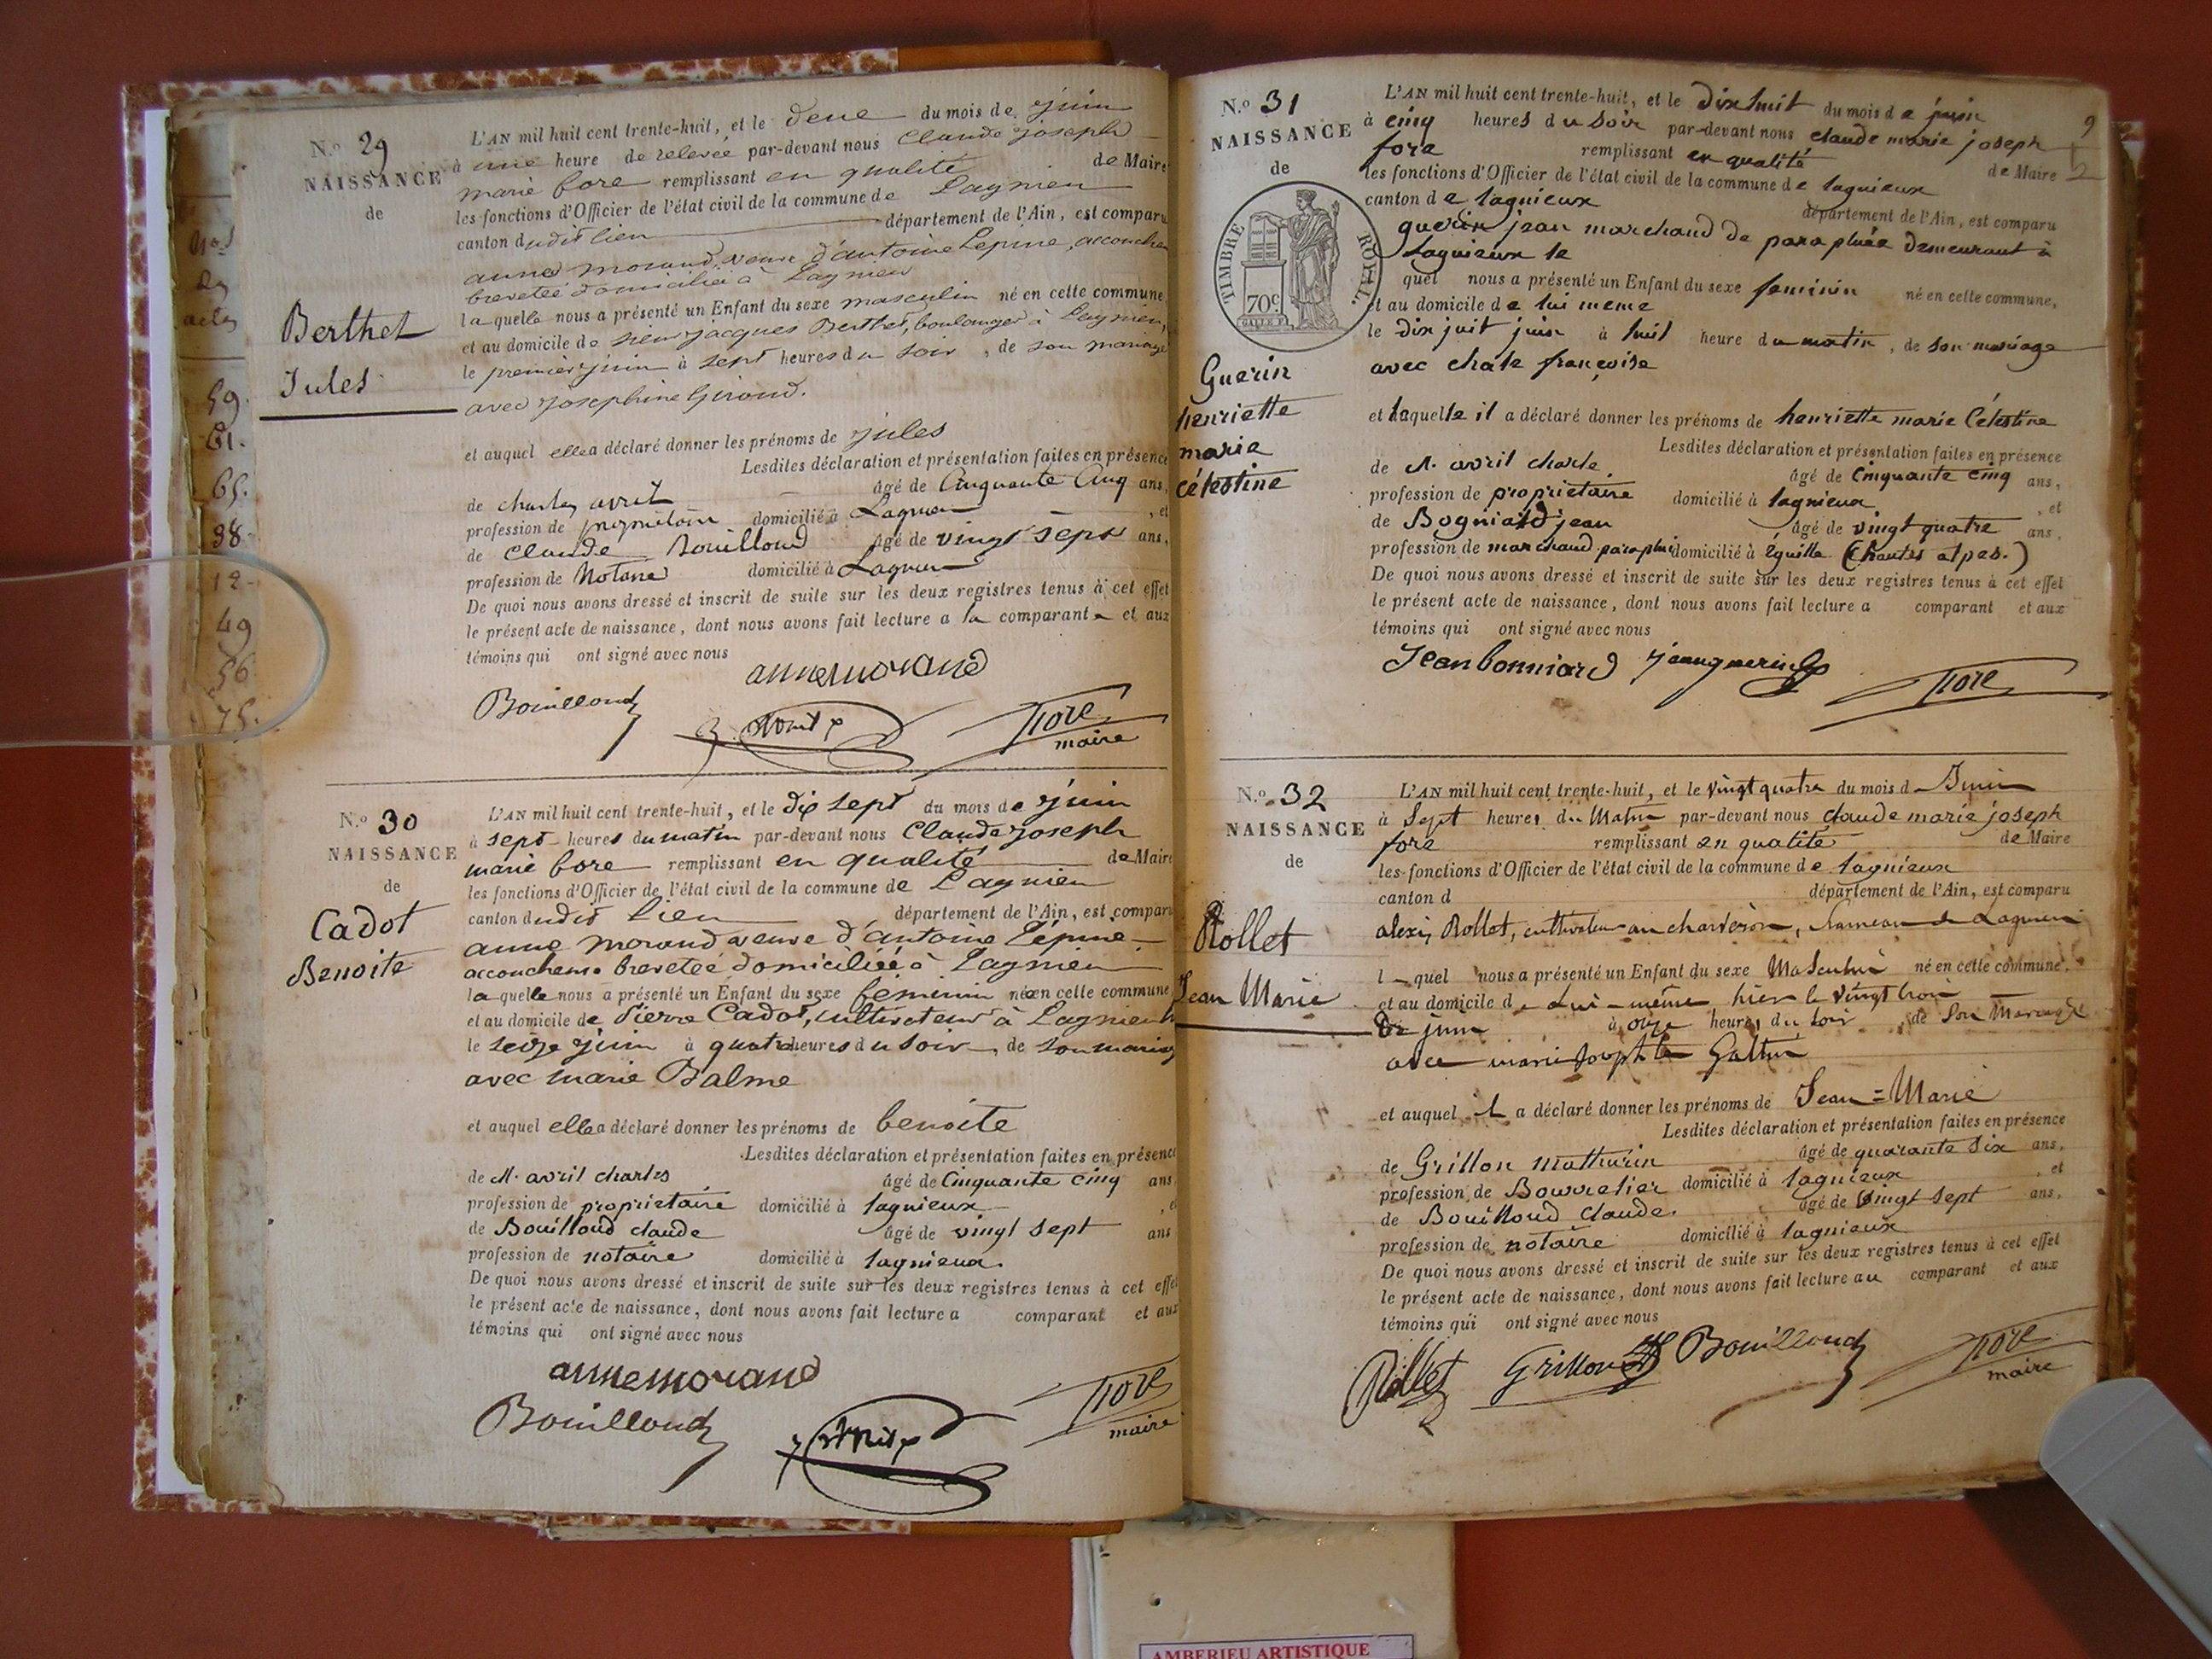 N.º 29
NAISSANCE
de
Berthet
Jules
L'AN mil huit cent trente-huit, et le deux du mois de juin
à une heure de relevée par-devant nous Claude joseph
marie fore remplissant en qualité de Maire
les fonctions d'Officier de l'état civil de la commune de Lagnieu
canton dudit lieu département de l'Ain, est comparu
anne morand veuve d'antoine Lépine, accoucheu
brevetée domiciliée à Lagnieu
laquelle nous a présenté un Enfant du sexe masculin né en cette commune
et au domicile de sieur jacques Berthet, boulanger à Lagnieu,
le premier juin à sept heures du soir, de son mariage
avec josephine Giroud.
et auquel elle a déclaré donner les prénoms de jules
Lesdites déclaration et présentation faites en présence
de charles avril âgé de Cinquante Cinq ans,
profession de propriétaire domicilié à Lagnieu, et
de Claude Bouilloud âgé de vingt sept ans,
profession de Notaire domicilié à Lagnieu
De quoi nous avons dressé et inscrit de suite sur les deux registres tenus à cet effet
le présent acte de naissance, dont nous avons fait lecture a la comparante et aux
témoins qui ont signé avec nous
anne morand
Bouilloud avril fore
maire
N.º 30
NAISSANCE
de
Cadot
Benoite
L'AN mil huit cent trente-huit, et le dix sept du mois de juin
à sept heures du matin par-devant nous Claude joseph
marie fore remplissant en qualité de Maire
les fonctions d'Officier de l'état civil de la commune de Lagnieu
canton dudit lieu département de l'Ain, est comparu
anne morand veuve d'antoine Lépine
accoucheuse brevetée domiciliée à Lagnieu
laquelle nous a présenté un Enfant du sexe féminin née en cette commune
et au domicile de Pierre Cadot, cultivateur à Lagnieu
le seize juin à quatre heures du soir, de son mariag
avec marie Balme
et auquel elle a déclaré donner les prénoms de benoite
Lesdites déclaration et présentation faites en présence
de M. avril charles âgé de Cinquante cinq ans
profession de propriétaire domicilié à lagnieux, et
de Bouilloud claude âgé de vingt sept ans
profession de notaire domicilié à lagnieux.
De quoi nous avons dressé et inscrit de suite sur les deux registres tenus à cet effet
le présent acte de naissance, dont nous avons fait lecture a comparant et aux
témoins qui ont signé avec nous
anne morand
Bouilloud avril fore
maire
9
N.º 31
NAISSANCE
de
TIMBRE ROYAL.
70c.
Guerin
henriette
marie
célestine
L'AN mil huit cent trente-huit, et le dix huit du mois de juin
à cinq heures du soir par-devant nous claude marie joseph
fore remplissant en qualité de Maire
les fonctions d'Officier de l'état civil de la commune de lagnieux
canton de lagnieux département de l'Ain, est comparu
guerin jean marchand de parapluie demeurant à
Lagnieux le
quel nous a présenté un Enfant du sexe feminin né en cette commune,
et au domicile de lui meme
le dix juit juin à huit heure du matin, de son mariage
avec françoise
et laquelle il a déclaré donner les prénoms de henriette marie Célestine
Lesdites déclaration et présentation faites en présence
de M. avril charle âgé de Cinquante cinq ans,
profession de proprietaire domicilié à lagnieux, et
de jean âgé de vingt quatre ans,
profession de marchand parapluie domicilié à éguille (hautes alpes.)
De quoi nous avons dressé et inscrit de suite sur les deux registres tenus à cet effet
le présent acte de naissance, dont nous avons fait lecture a comparant et aux
témoins qui ont signé avec nous
Jean bonniard jean guerin fore
N.º 32
NAISSANCE
de
Rollet
Jean Marie
L'AN mil huit cent trente-huit, et le vingt quatre du mois d Juin
à Sept heures du Matin par-devant nous claude marie joseph
fore remplissant en qualité de Maire
les fonctions d'Officier de l'état civil de la commune de lagnieux
canton d département de l'Ain, est comparu
alexis Rollet, cultivateur au hameau de Lagnieu
lequel nous a présenté un Enfant du sexe Masculin né en cette commune,
et au domicile de Lui-même hier le vingt trois
de juin à onze heures du soir, de son Mariage
avec marie
et auquel il a déclaré donner les prénoms de Jean=Marie
Lesdites déclaration et présentation faites en présence
de Grillon mathurin âgé de quarante six ans,
profession de Bourrelier domicilié à lagnieux, et
de Bouilloud claude. âgé de vingt sept ans,
profession de notaire domicilié à lagnieux
De quoi nous avons dressé et inscrit de suite sur les deux registres tenus à cet effet
le présent acte de naissance, dont nous avons fait lecture au comparant et aux
témoins qui ont signé avec nous
Rollet Grillon Bouilloud fore
maire
59.
61.
65.
38.
12.
49
56
75.
AMBERIEU ARTISTIQUE